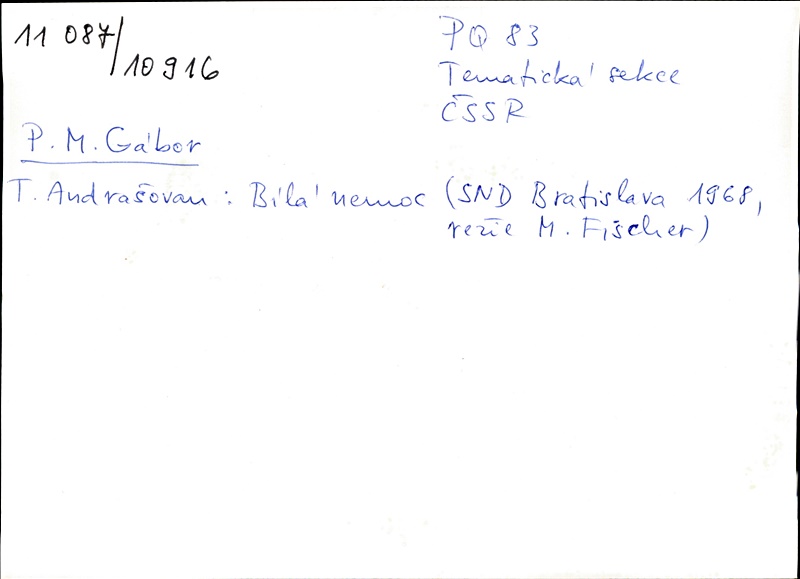 11 087/10 916
PQ 83
Tematická sekce
ČSSR
P. M. Gábor
T. Andrašovan : Bílá nemoc (SND Bratislava 1968,
režie M. Fišcher)